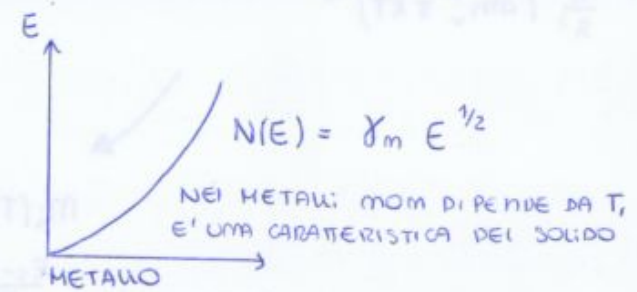 E
N(E) = γm E^1/2
NEI METALLI NON DIPENDE DA T,
E' UNA CARATTERISTICA DEL SOLIDO
METALLO